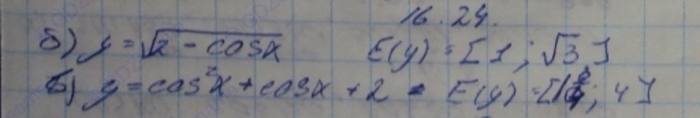 16.24.
б) y = √2 - cosx E(y) = [1; √3]
в) y = cos²x + cosx + 2 - E(y) = [1 3/4; 4]